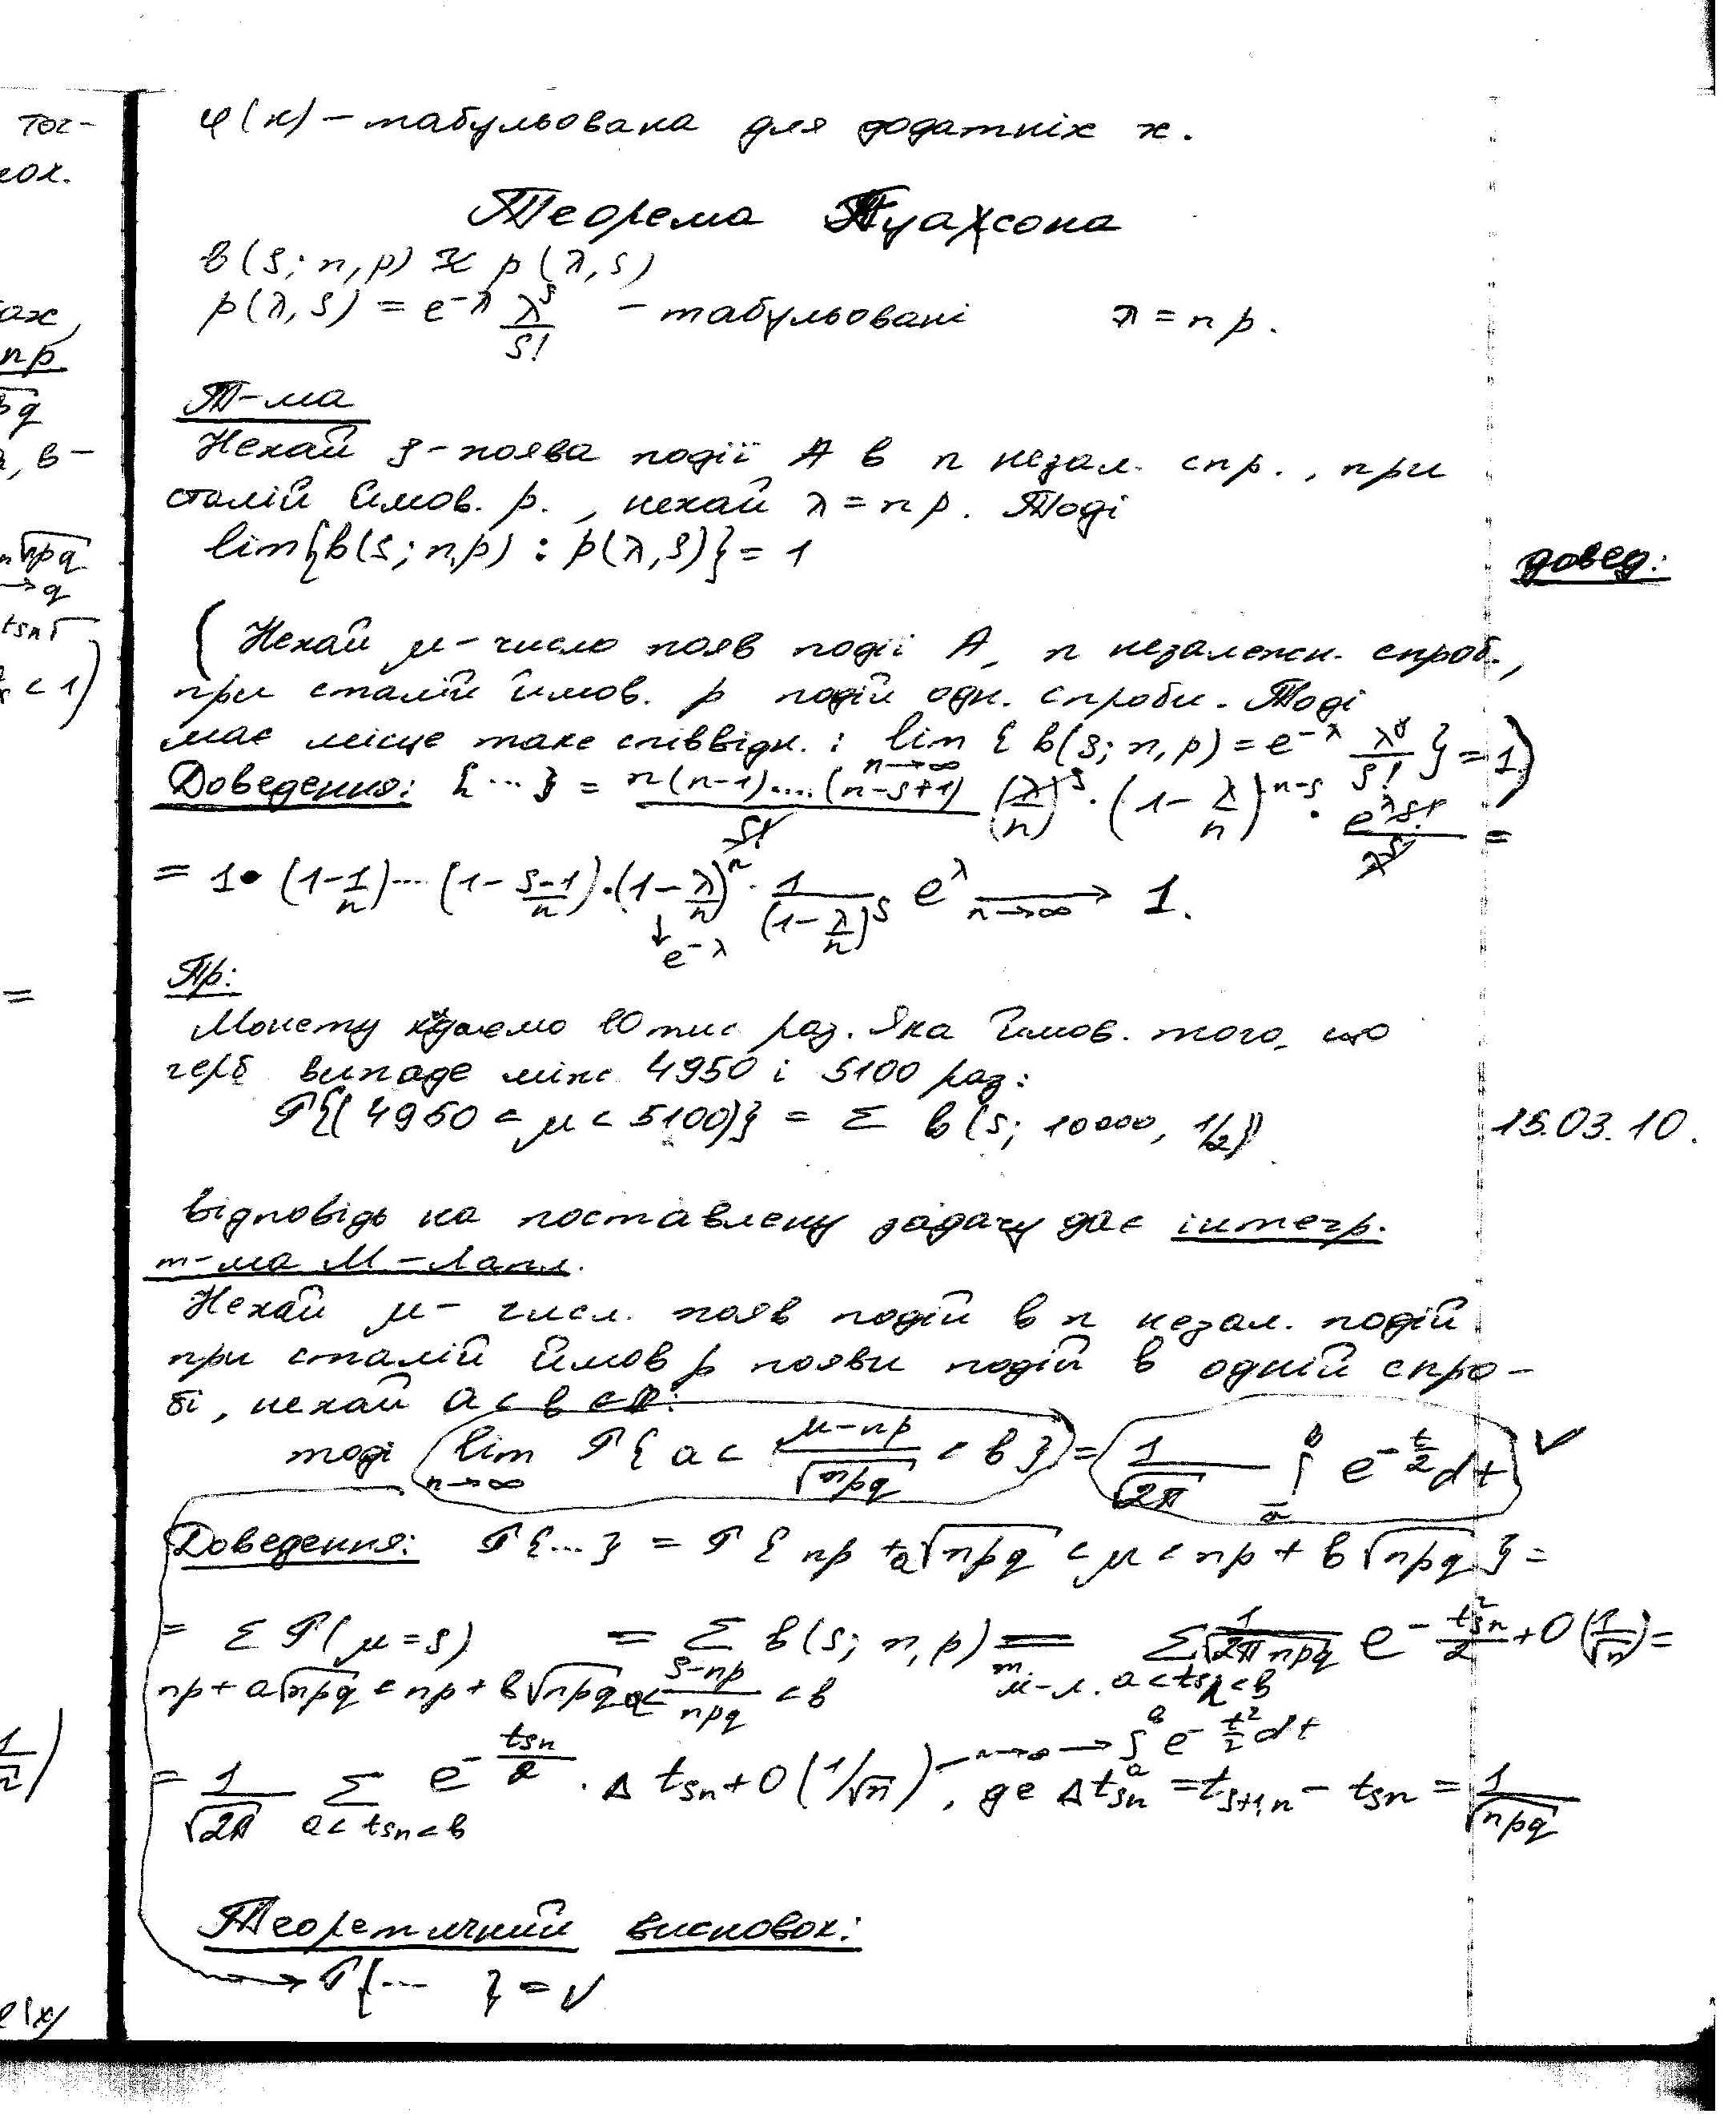 φ(x) – табульована для додатніх x.
Теорема Пуассона
b(s; n, p) ≈ p(λ, s)
p(λ, s) = e^{-λ} λ^s / s! – табульовані λ = np.
Т-ма
Нехай s - поява події A в n незал. спр., при
сталій ймов. p., нехай λ = np. Тоді
lim{b(s; n,p) : p(λ, s)} = 1
довед:
(Нехай μ - число появ події A, n незалежн. спроб.,
при сталій ймов. p подій одн. спроби. Тоді
має місце таке співвідн.: lim_{n→∞} {b(s; n, p) = e^{-λ} λ^s / s!} = 1)
Доведення: {...} = n(n-1)....(n-s+1) / s! (λ/n)^s · (1 - λ/n)^{n-s} · e^λ s! / λ^s =
= 1 • (1 - 1/n)... (1 - s-1/n) · (1 - λ/n)^n · 1 / (1 - λ/n)^s e^λ →_{n→∞} 1.
↓ e^{-λ}
Пр:
Монету кдаємо 10 тис раз. Яка ймов. того, що
герб випаде між 4950 і 5100 раз:
P{(4950 < μ < 5100)} = Σ b(s; 10000, 1/2)
15.03.10.
Відповідь на поставлену задачу дає інтегр.
т-ма М-Лапл.
Нехай μ - числ. появ подій в n незал. подій
при сталій ймов p появи подій в одній спро-
бі, нехай a < b
тоді lim_{n→∞} P{a < μ-np / √npq < b} = 1/√2π ∫_a^b e^{-t/2} dt ✓
Доведення: P{...} = P{np + a√npq < μ < np + b√npq} =
= Σ P(μ = s) = Σ b(s; n, p) = Σ 1/√2πnpq e^{-t²sn/2} + O(1/√n) =
np + a√npq < np + b√npq a < s-np / npq < b т. м-л. a < tsn < b
= 1/√2π Σ e^{-tsn/2} · Δ tsn + O(1/√n) —n→∞→ ∫_a^b e^{-t²/2} dt, де Δtsn = t_{s+1,n} - tsn = 1/√npq
a < tsn < b
Теоретичний висновок:
→ P{... } = ✓